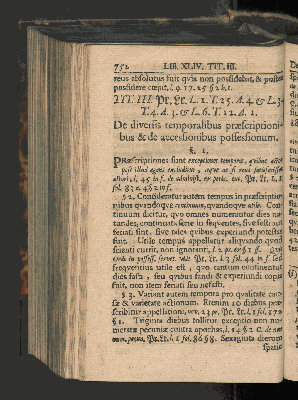 752 LIB. XLIV. TIT. III.
reus absolutus fuit qvia non possidebat, & postea
possidere cœpit, l. 9. 17. 25 § 2 h. t.
TIT. III. Pr. Lt. L. 2. T. 25. A. 4. & L. 3.
T. 4. A. 3. & L. 6. T. 12. A. 1.
De diversis temporalibus præscriptioni-
bus & de accessionibus possessionum.
§. 1.
PRæscriptiones sunt exceptiones temporis, qvibus
post illud agens excluditur,
actori, l. 45 in f. Pr. Lt. L. 1
fol. 83
§ 2. Consideratur autem tempus in præscriptio
nibus quandoque continuum, quandoque utile. Con-
tinuum dicitur, qvo omnes numerantur dies na-
turales, continuata serie in sequentes, sive festi aut
feriati sint, sive tales qvibus experiundi potestas
fuit. Utile tempus appellatur aliqvando qvod
scienti currit, non ignoranti, l. 2
frequentius utile est, qvo tantum continentur
dies fasti, seu qvibus fandi & experiundi copia
fuit, non item feriati seu nefasti.
§ 3. Variant autem tempora pro qvalitate cau-
sæ & varietate actionum. Etenim 10 diebus præ-
scribitur appellationi, nov. 23 pr. Pr. Lt. l fol. 170
§ 1. Triginta diebus tollitur exceptio non nu-
meratæ pecuniæ contra apochas, l. 14 § 2 C. de non
num. pecun. Pr. Lt. l fol. 86 § 8. Sexaginta dierum
spatio